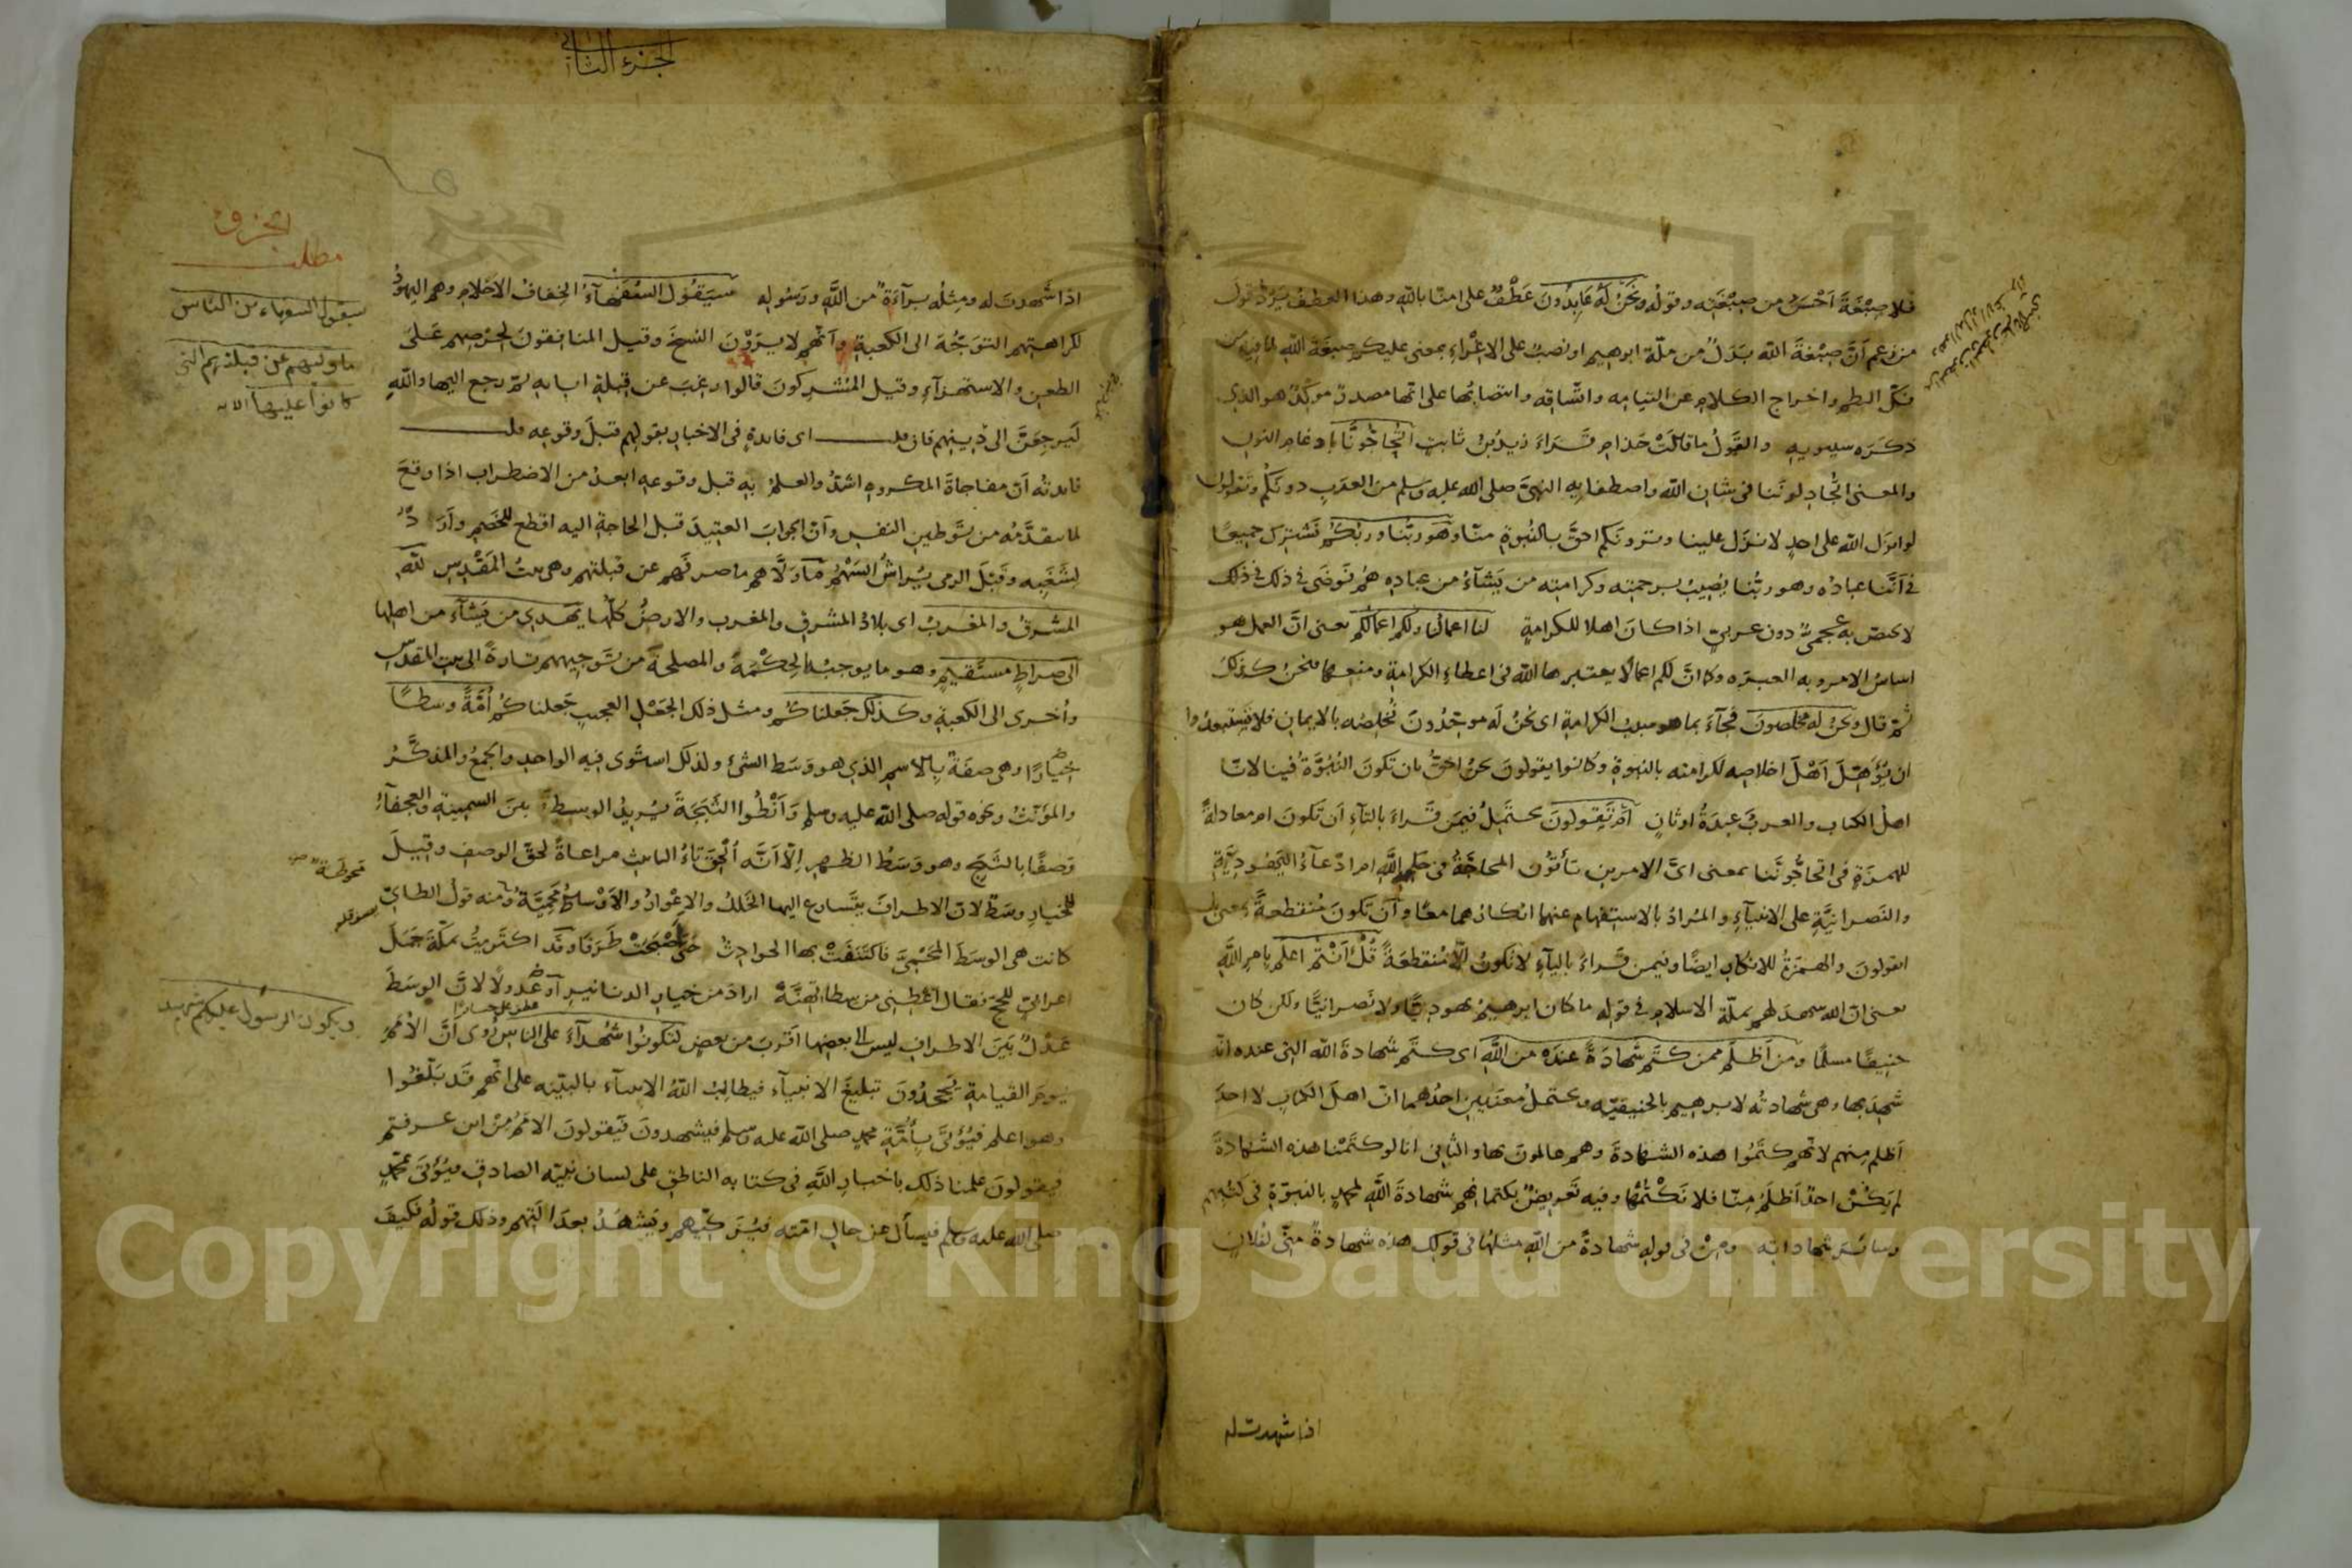 فلا صِبْغَةَ اَحْسَنُ من صِبْغَتِه وقولُه ونَحْنُ لَهُ عَابِدُونَ عَطْفٌ على امنّا بالله وهذا العطفُ يَرُدُّ قولَ
من زعم اَنَّ صِبْغةَ الله بَدَلٌ من ملّة ابرهيم او نصبٌ على الاِغْراءِ بمعنى عليكم صبغةَ الله لما فيه من
فكّ النظم واخراج الكلام عن التيامه واتّساقه وانتصابُها على انّها مصدرٌ مؤكِّدٌ هو الذي
ذكَرَه سيبويه والقَوْلُ ما قالَتْ حَذامِ قَرَاءَ زيدُ بنُ ثابتٍ اَتُحَاجُّونَّا بادغام النون
والمعنى اَتُجادلونَنا فى شان الله واصطفايِهِ النبىَّ صلى الله عليه وسلم من العرَبِ دونَكُم وتَقولون
لو انزَل الله على احدٍ لانزَل علينا وترونَكم احقَّ بالنُبوةِ منّا وهُوَ ربّنا وربُّكُم نَشْتَرِك جميعًا
فى اَنَّنا عبادُه وهو ربُّنا يُصِيبُ برحمتِه وكرامتِه من يَشآءُ من عبادِه هُم فَوْضَى فى ذلك فى ذلك
لا يختصّ به عجمىٌّ دون عربىٍ اذا كانَ اهلا للكرامةِ لنا اعمالُنا ولكُم اعمالُكُم يعنى انَّ العمل هو
اساسُ الامر وبه العبرَه وكما انَّ لكم اعمالًا يعتبرها الله فى اعطاءِ الكرامةِ ومنعِها فنحنُ كذلك
ثُمّ قال ونحنُ له مخلِصونَ فجآءَ بما هو سببُ الكرامةِ اى نحنُ لَه موحّدُونَ نُخلِصُه بالايمانِ فلا تَستبعِدُوا
ان يُؤَهِّلَ اَهْلَ اخلاصِه لكرامتِه بالنبوةِ وكانوا يقولونَ نحنُ احقُّ بان تكونَ النُبُوَّةُ فينا لانّا
اهلُ الكتابِ والعربُ عبَدَةُ اوثانٍ اَمْ تَقُولونَ يحتَمِلُ فيمَن قَرَاءَ بالتآءِ اَن تكونَ ام معادلةً
للهمزَةِ فى اَتحاجُّونَّنا بمعنى اىَّ الامرين تأتُونَ المحاجَّةَ فى حكمِ اللهِ ام ادّعآءُ اليَهُودِيَّةِ
والنَصرانيَّةِ على الانبيآءِ والمُرادُ بالاستفهام عنهما انكارُهما معًا واَن تكونَ مُنقطعةً بمعنى بل
اتقولونَ والهمزةُ للانكارِ ايضًا وفيمن قَراءَ باليآءِ لا تكونُ الّا مُنقطِعَةً قُلْ اَنْتُم اعلَم يامرِ اللهِ
يعنى انّ الله شهدَ لهم بملّة الاسلامِ فى قولِه ما كان ابرهيمُ يهوديًّا ولا نَصرانيًّا ولكن كان
حنيفًا مسلمًا ومَن اَظْلَم ممن كتَم شَهادَةً عندَه من اللهِ اى كتَم شهادةَ الله التى عنده انّه
شَهِدَ بها وهى شهادتُه لابرهيم بالحنيفيّه ويحتملُ معنَيينِ احدُهما انّ اهلَ الكتابِ لا احدَ
اَظلم منهم لانّهم كتَمُوا هذه الشهادةَ وهم عالمونَ بها والثانى انا لو كتَمْنا هذه الشهادةَ
لم يَكُنْ احدٌ اَظْلَمَ مِنّا فلا نَكْتُمُها وفيه تَعريضٌ بكتمانِهم شهادةَ اللهِ لمحمدٍ بالنبوّةِ فى كُتُبِهم
وسائرَ شهاداتِه ومِنْ فى قولِه شهادةً من اللهِ مثلُها فى قولِك هذه شهادةٌ منّى لفُلانٍ
اذا شهدت له
الجزء الثانى
اذا شَهِدتَ له ومِثلُه برآءَةٌ من اللهِ ورَسُولِه سَيَقُولُ السُفَهَآءُ الخِفافُ الاَحْلامِ وهم اليهودُ
لكراهتِهم التَوجُّهَ الى الكعبةِ واَنّهم لا يَرَوْنَ النسخَ وقيل المنافقونَ لحِرْصِهم عَلَى
الطعنِ والاستهزآءِ وقيل المُشركونَ قالوا رغبَ عن قِبلةِ ابايه ثمّ رجع اليها واللهِ
لَيَرجِعَنَّ الى دِينِهم فان قلت اى فائدةٍ فى الاخبارِ بقولِهم قبلَ وقوعِه قلت
فائدتُه اَنّ مفاجاةَ المكروهِ اشدُّ والعلمُ بِه قبل وقوعِه ابعدُ من الاضطراب اذا وقعَ
لما يتقدَّمُه من تَوْطينِ النفسِ واَنّ الجوابَ العتيدَ قبل الحاجةِ اليه اقطع للخَصْمِ واَرَدُّ
لِشَغَبِه وقَبْلَ الرمى يُراشُ السَهْمُ مَا وَلَّاهم ما صرفَهم عن قبلتِهم وهى بيتُ المَقْدِسِ للهِ
المَشرقُ والمغربُ اى بلادُ المشرقِ والمغرب والارضُ كلُّها يَهدِى من يَشآءُ من اهلها
الى صراطٍ مستقيمٍ وهو ما يوجبُه الحِكْمَةُ والمصلحةُ من تَوجيهِهم تارةً الى بيت المقدّسِ
واُخرى الى الكعبةِ وكَذلك جَعلناكُم ومثل ذلك الجَعْلِ العجيبِ جَعلناكُم اُمّةً وسطًا
خِيارًا وهى صفَةٌ بالاسمِ الذى هو وَسَط الشىْءِ ولذلك استَوى فيه الواحدُ والجمعُ والمذكَّرُ
والمؤنّثُ ونحوُه قولُه صلى الله عليه وسلم وَاَنْطُوا الثَبَجَةَ يُريدُ الوسيطةَ بينَ السمينةِ والعجفآءِ
وَصفًا بالثَبَجِ وهو وَسَطُ الظَهرِ الّا اَنَّه اُلْحِقَ تاءُ التانيث مراعاةً لحقّ الوصفِ وقيلَ
للخيارِ وسَطٌ لانّ الاطرافَ يتَسارع اليها الخَلَلُ والاِعْوارُ والاَوْساطُ مَحميَّةٌ ومنه قولُ الطائىّ
كانت هى الوسَطَ المَحْمِىَّ فاكتَنفَتْ بها الحوادثُ حتّى اَصْبَحَتْ طَرَفَا وقَد اكتَريتُ بمكّةَ جَمَلَ
اعرابىٍّ للحجّ فقال اَعْطِنى من سِطاتِهنَّهْ ارادَ من خيارِ الدنانيرِ اَو عُدولًا لانّ الوسَطَ
عَدْلٌ بَيْنَ الاطرافِ ليس الى بعضِها اَقربَ من بعضٍ لتكونُوا شُهدآءَ على الناسِ رُوى اَنَّ الاُمَمَ
يَومَ القيامةِ يَجحدُونَ تبليغَ الانبيآءِ فيطالِبُ اللهُ الانبيآءَ بالبيّنه على انّهم قَد بَلّغُوا
وهو اعلم فيُؤتَى بِاُمّةِ محمدٍ صلى الله عليه وسلم فيشهدونَ فيَقولونَ الاُمَمُ مِنْ اينَ عرفتُم
فيقولونَ علمنا ذلك باخبارِ اللهِ فى كتابِه الناطقِ على لسان نبيّه الصادقِ فيُؤتَى بمحمّدٍ
صلى الله عليه وسلم فيسأل عن حالِ امّته فيُزَكّيهم ويَشْهَدُ بعدالتِهم وذلك قولُه فكيفَ
مطلب
سيقول السفهاء من الناس
ما وليهم عن قبلتهم التى
كانوا عليها الايه
ويكون الرسول عليكم شهيدا
Copyright © King Saud University